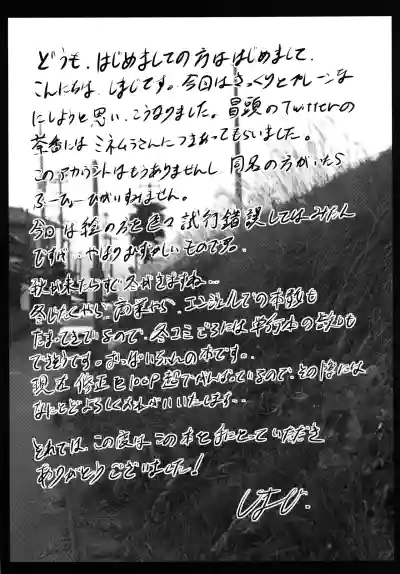 どうも、はじめましての方ははじめまして、
こんにちは、しまじです。今回はさっくりとプレーンな
にしようと思い、こうなりました。冒頭のTwitterの
ミネムラさんにつきあってもらいました。
このアカウントはもうありませんし 同名の方がいたら
すみません。
今回は絵の方も色々試行錯誤してはみたん
ですが…やはりむずかしいものです。
秋が来たらすぐ冬がきますね…
冬したくやら、商業やら、エンジェルでの本数も
たまってきているので、冬コミごろには単行本の告知も
できそうです。おっぱいちゃんの本です。
現在 修正と100P超でがんばっているので、その際には
なにとぞよろしくおねがいいたします…
それでは、この度はこの本を手にとっていただき
ありがとうございました！